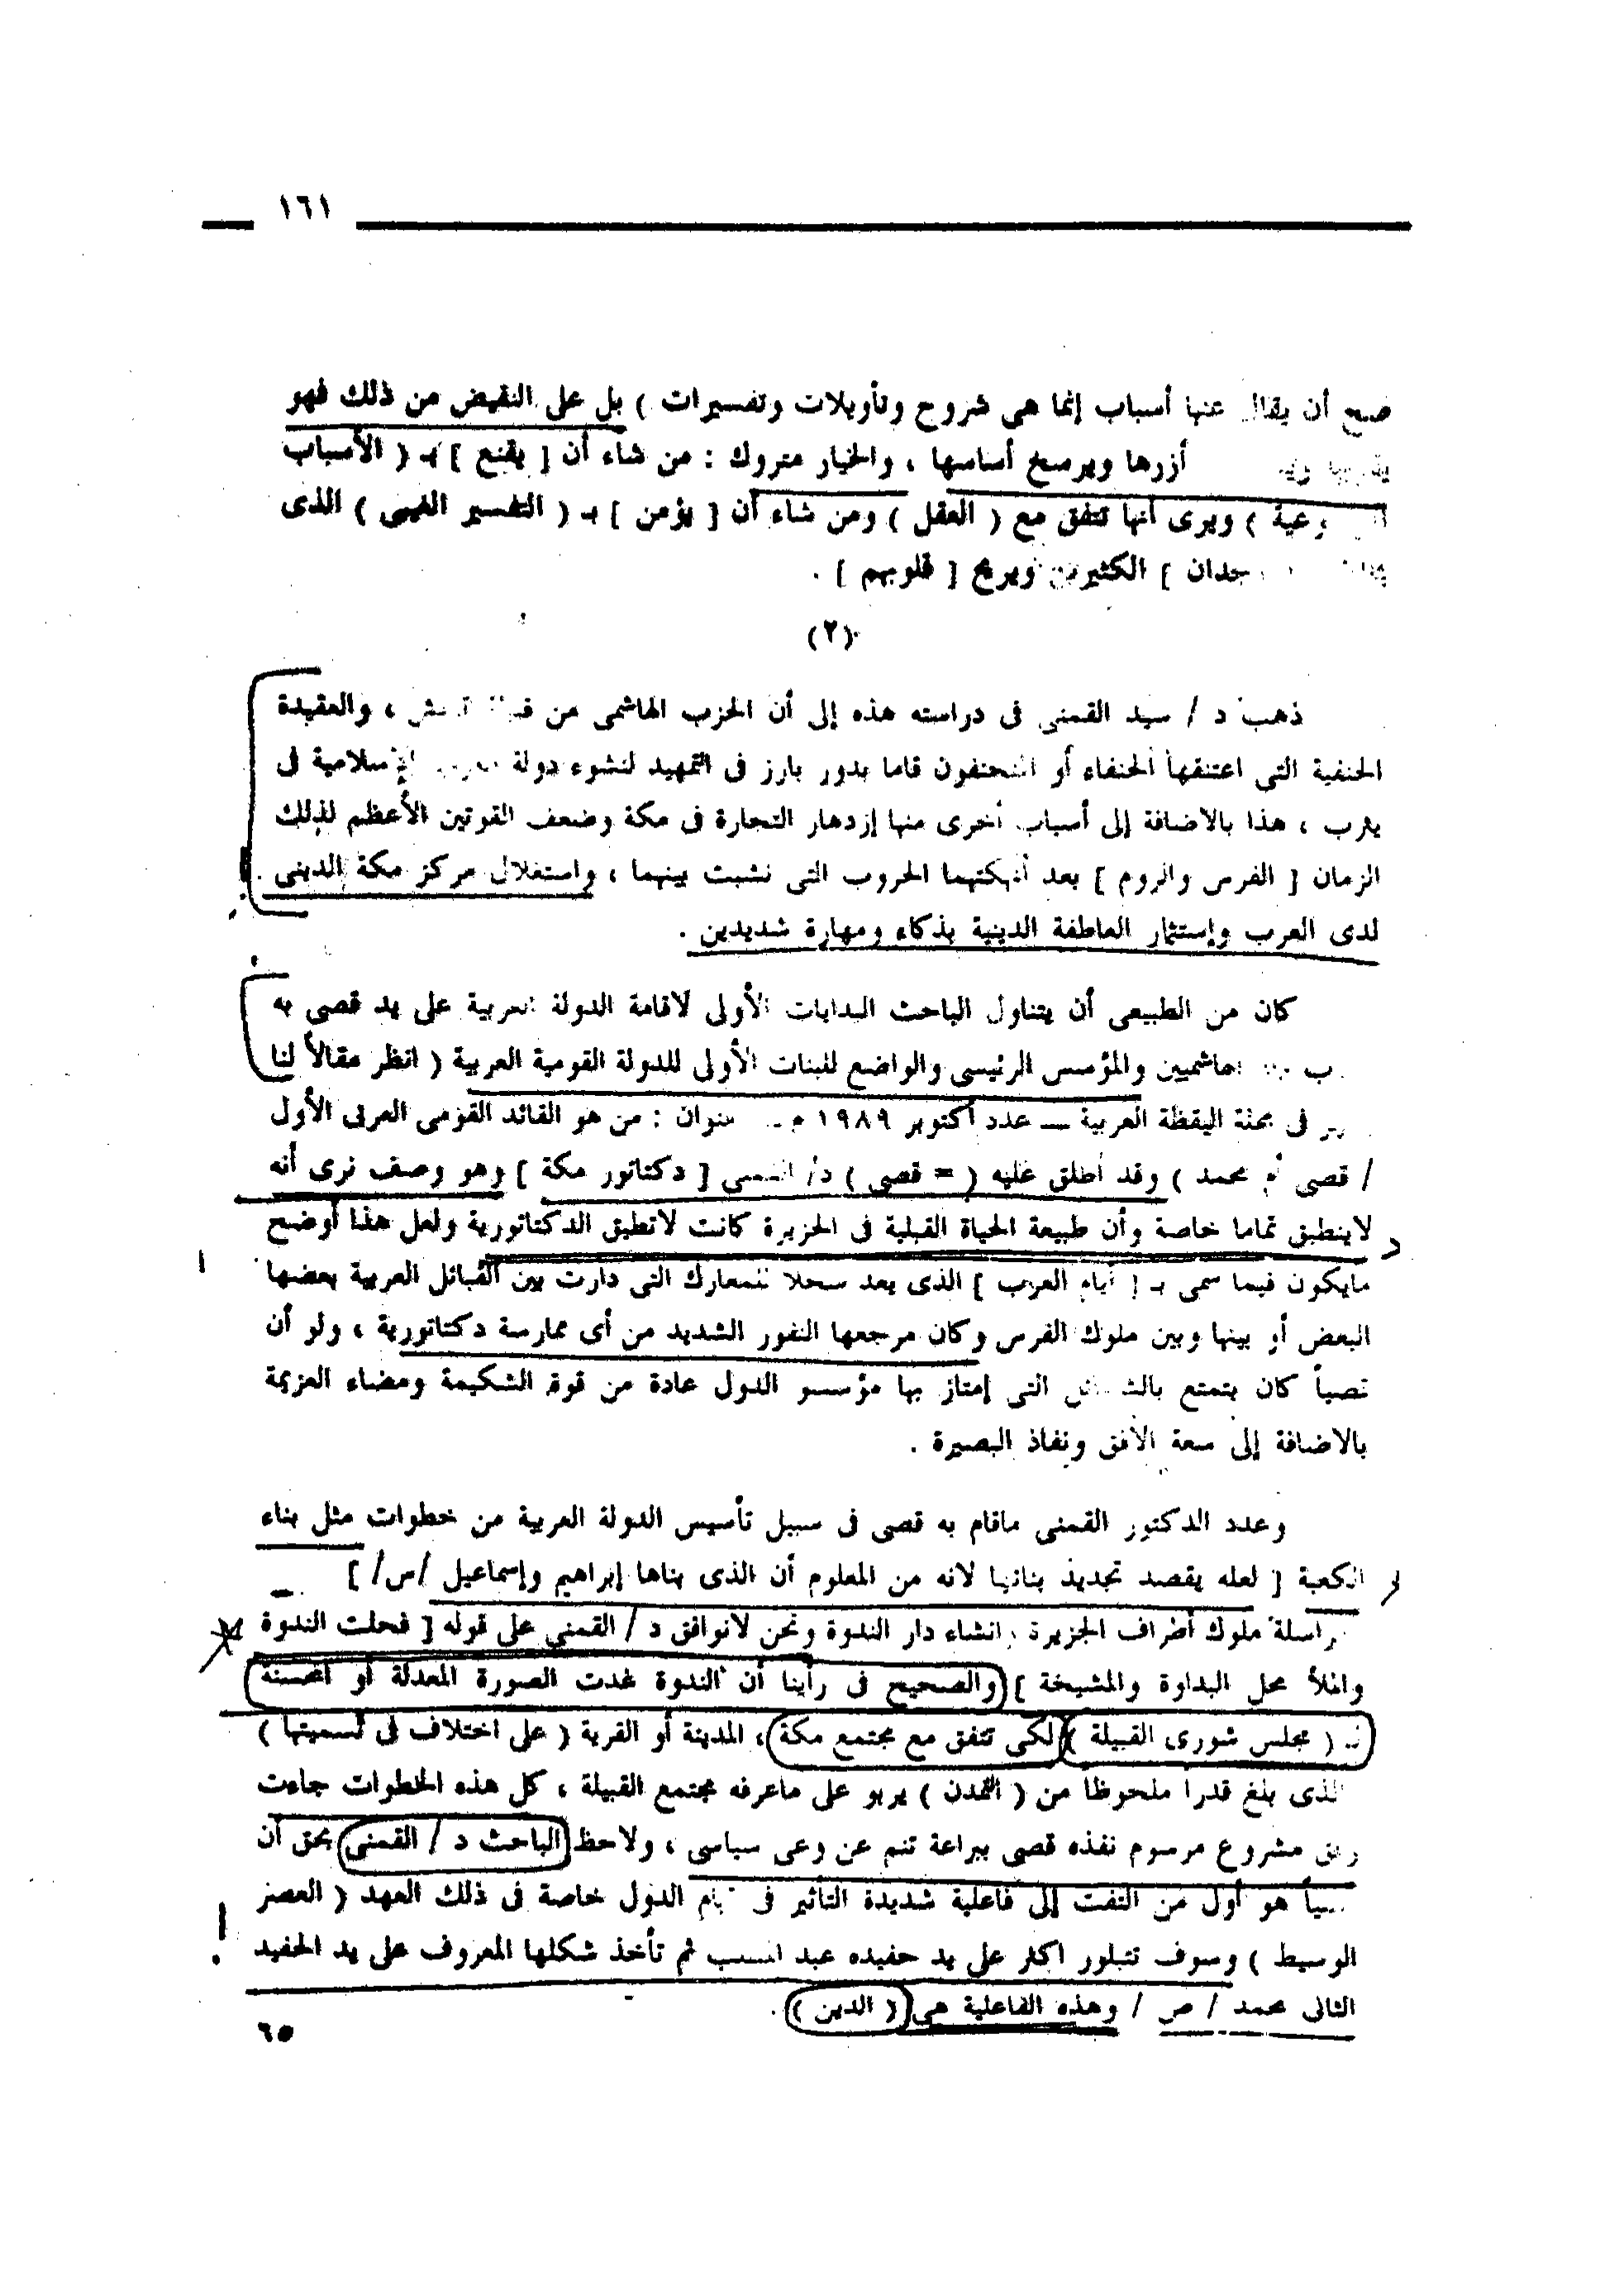 ١٦١
صح أن يقال عنها أسباب إنما هى شروح وتأويلات وتفسيرات ) بل على النقيض من ذلك فهو
أزرها ويرسخ أساسها ، والخيار متروك : من شاء أن [ يقنع ] بـ ( الأسباب
ويرى أنها تتفق مع ( العقل ) ومن شاء أن [ يؤمن ] بـ ( التفسير الغيبى ) الذى
الكثيرين ويريح [ قلوبهم ] .
(٢)
ذهب د / سيد القمنى فى دراسته هذه إلى أن الحزب الهاشمى من ، والعقيدة
الحنفية التى اعتنقها الحنفاء أو المتحنفون قاما بدور بارز فى التمهيد لنشوء دولة الإسلامية فى
يثرب ، هذا بالاضافة إلى أسباب أخرى منها إزدهار التجارة فى مكة وضعف القوتين الأعظم لذلك
الزمان [ الفرس والروم ] بعد أنهكتهما الحروب التى نشبت بينهما ، واستغلال مركز مكة الدينى
لدى العرب وإستثمار العاطفة الدينية بذكاء ومهارة شديدين .
كان من الطبيعى أن يتناول الباحث البدايات الأولى لاقامة الدولة العربية على يد قصى به
الهاشميين والمؤسس الرئيسى والواضع للبنات الأولى للدولة القومية العربية ( انظر مقالاً لنا
فى مجلة اليقظة العربية ــ عدد أكتوبر ١٩٨٩ م ـ عنوان : من هو القائد القومى العربى الأول
/ قصى أم محمد ) وقد أطلق عليه ( = قصى ) د/ القمنى [ دكتاتور مكة ] وهو وصف نرى أنه
لاينطبق تماما خاصة وأن طبيعة الحياة القبلية فى الجزيرة كانت لاتطيق الدكتاتورية ولعل هذا أوضح
مايكون فيما سمى بـ [ أيام العرب ] الذى يعد سجلا للمعارك التى دارت بين القبائل العربية بعضها
البعض أو بينها وبين ملوك الفرس وكان مرجعها النفور الشديد من أى ممارسة دكتاتورية ، ولو أن
قصياً كان يتمتع التى إمتاز بها مؤسسو الدول عادة من قوة الشكيمة ومضاء العزيمة
بالاضافة إلى سعة الأفق ونفاذ البصيرة .
وعدد الدكتور القمنى ماقام به قصى فى سبيل تأسيس الدولة العربية من خطوات مثل بناء
الكعبة [ لعله يقصد تجديد بنائها لانه من المعلوم أن الذى بناها إبراهيم وإسماعيل /س/ ]
مراسلة ملوك أطراف الجزيرة وانشاء دار الندوة ونحن لانوافق د / القمنى على قوله [ فحلت الندوة
والملأ محل البداوة والمشيخة ] والصحيح فى رأينا أن الندوة غدت الصورة المعدلة أو المحسنة
لـ ( مجلس شورى القبيلة ) لكى تتفق مع مجتمع مكة ، المدينة أو القرية ( على اختلاف فى تسميتها )
الذى بلغ قدرا ملحوظا من ( التمدن ) يربو على ماعرفه مجتمع القبيلة ، كل هذه الخطوات جاءت
وفق مشروع مرسوم نفذه قصى ببراعة تنم عن وعى سياسى ، ولاحظ الباحث د / القمنى بحق أن
قصياً هو أول من التفت إلى فاعلية شديدة التأثير فى قيام الدول خاصة فى ذلك العهد ( العصر
الوسيط ) وسوف تتبلور اكثر على يد حفيده عبد المطلب ثم تأخذ شكلها المعروف على يد الحفيد
الثانى محمد / ص / وهذه الفاعلية هى ( الدين ) .
٦٥